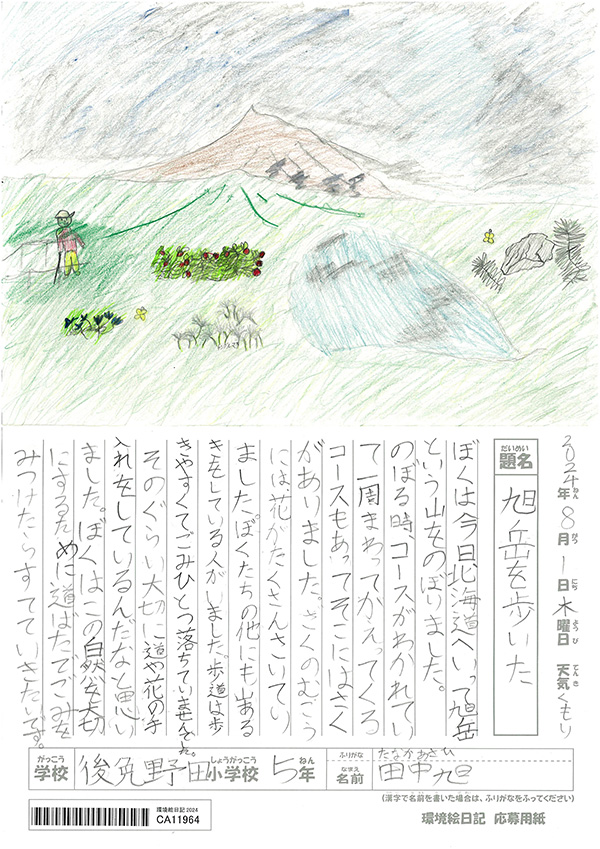 2024年8月1日木曜日 天気くもり
ねん がつ にち ようび てんき
だいめい
題名 旭岳を歩いた
ぼくは今日北海道へいって旭岳
という山をのぼりました。
のぼる時、コースがわかれてい
て一周まわってかえってくる
コースもあってそこにはさく
がありました。さくのむこう
には花がたくさんさいてい
ました。ぼくたちの他にも山ある
きをしている人がいました。歩道は歩
きやすくてごみひとつ落ちていませんでした。
そのぐらい大切に道や花の手
入れをしているんだなと思い
ました。ぼくはこの自然を大切
にするために道ばたでごみを
みつけたらすてていきたいです。
がっこう しょうがっこう ねん
学校 後免野田小学校 5年
ふりがな たなかあさひ
なまえ
名前 田中旭
(漢字で名前を書いた場合は、ふりがなをふってください)
環境絵日記2024
CA11964
環境絵日記 応募用紙